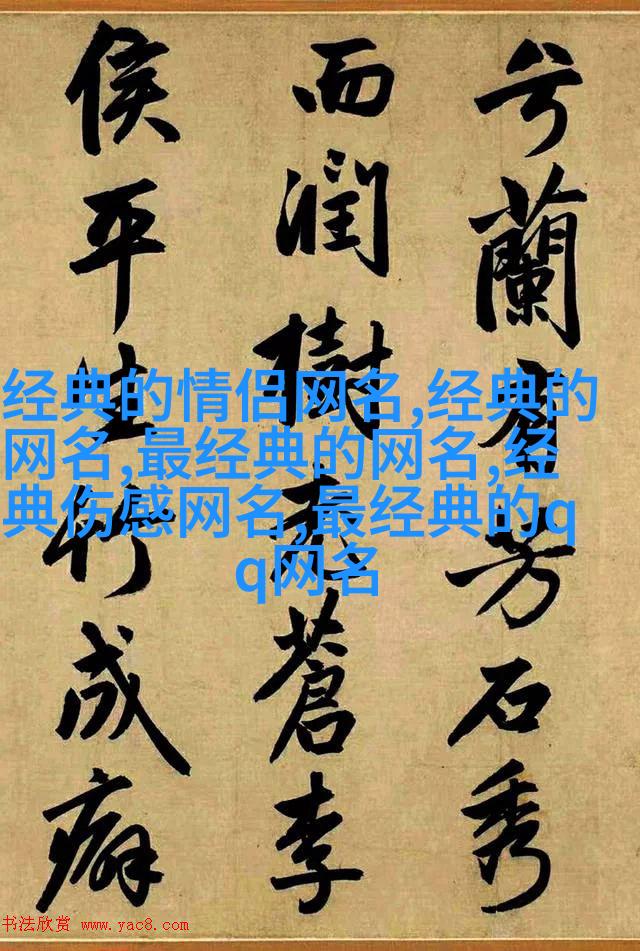 兮蘭有芳石秀
而潤樹蒼李
侯平生竹成癖
经典的情侣网名,经典的
网名,最经典的网名,经
典伤感网名,最经典的q
q网名
书法欣赏 www.yac8.com